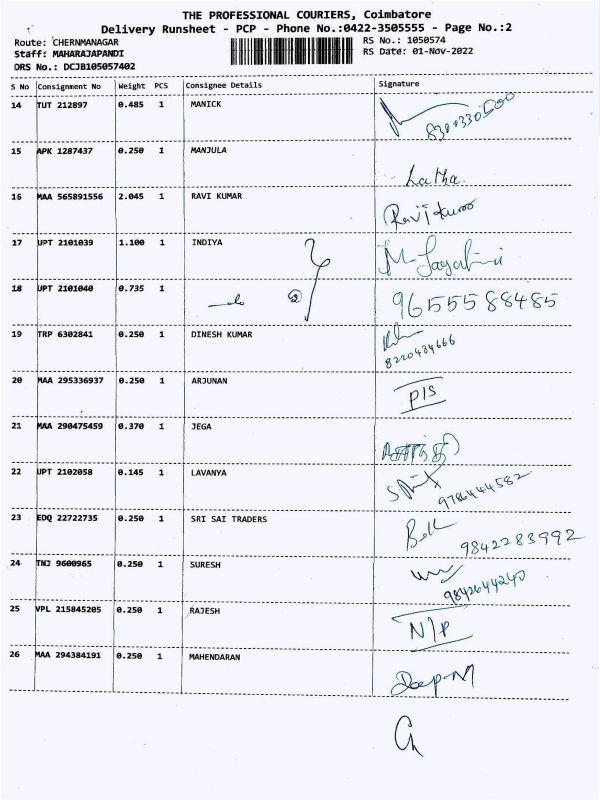 THE PROFESSIONAL COURIERS, Coimbatore
Delivery Runsheet - PCP - Phone No.:0422-3505555 - Page No.:2
Route: CHERNMANAGAR RS No.: 1050574
Staff: MAHARAJAPANDI RS Date: 01-Nov-2022
DRS No.: DCJB105057402
S No Consignment No Weight PCS Consignee Details Signature
14 TUT 212897 0.485 1 MANICK
15 APK 1287437 0.250 1 MANJULA
Latha
16 MAA 565891556 2.045 1 RAVI KUMAR
Ravikumar
17 UPT 2101039 1.100 1 INDIYA
18 UPT 2101040 0.735 1 9655588485
19 TRP 6302841 0.250 1 DINESH KUMAR
8220484666
20 MAA 295336937 0.250 1 ARJUNAN
P/S
21 MAA 290475459 0.370 1 JEGA
22 UPT 2102058 0.145 1 LAVANYA
9786444582
23 EDQ 22722735 0.250 1 SRI SAI TRADERS
9842283992
24 TNJ 9600965 0.250 1 SURESH
9842644240
25 VPL 215845205 0.250 1 RAJESH
N/P
26 MAA 294384191 0.250 1 MAHENDARAN